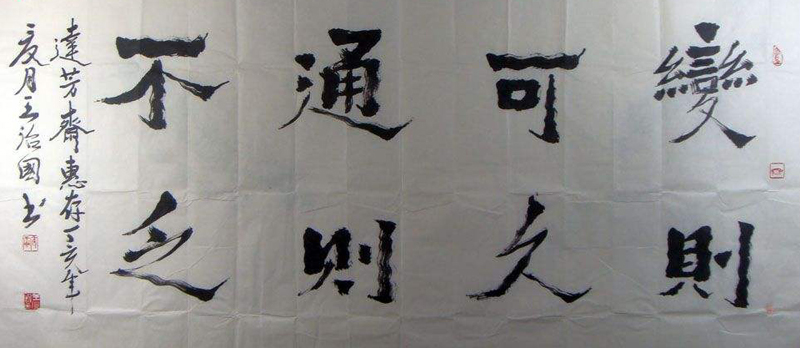 變則
可久
通则
不乏
達芳齋惠存丁亥年
夏月王治國书